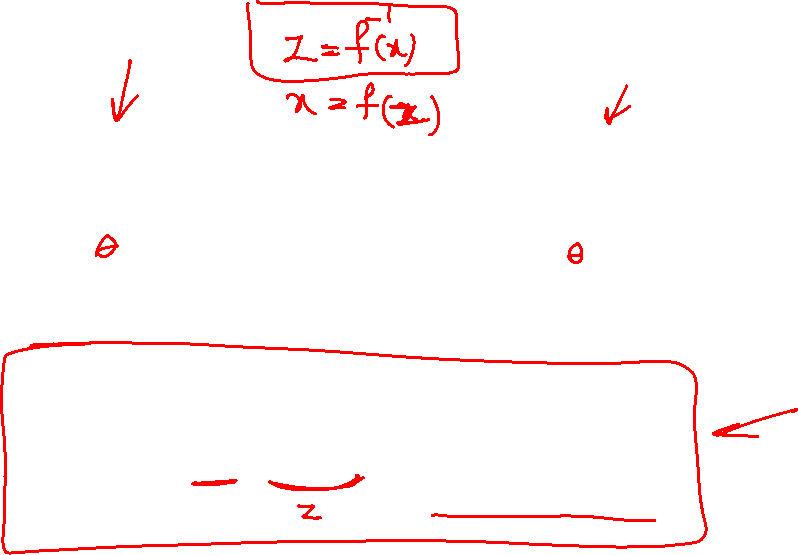 z = f⁻¹(x)
x = f(z)
θ θ
z